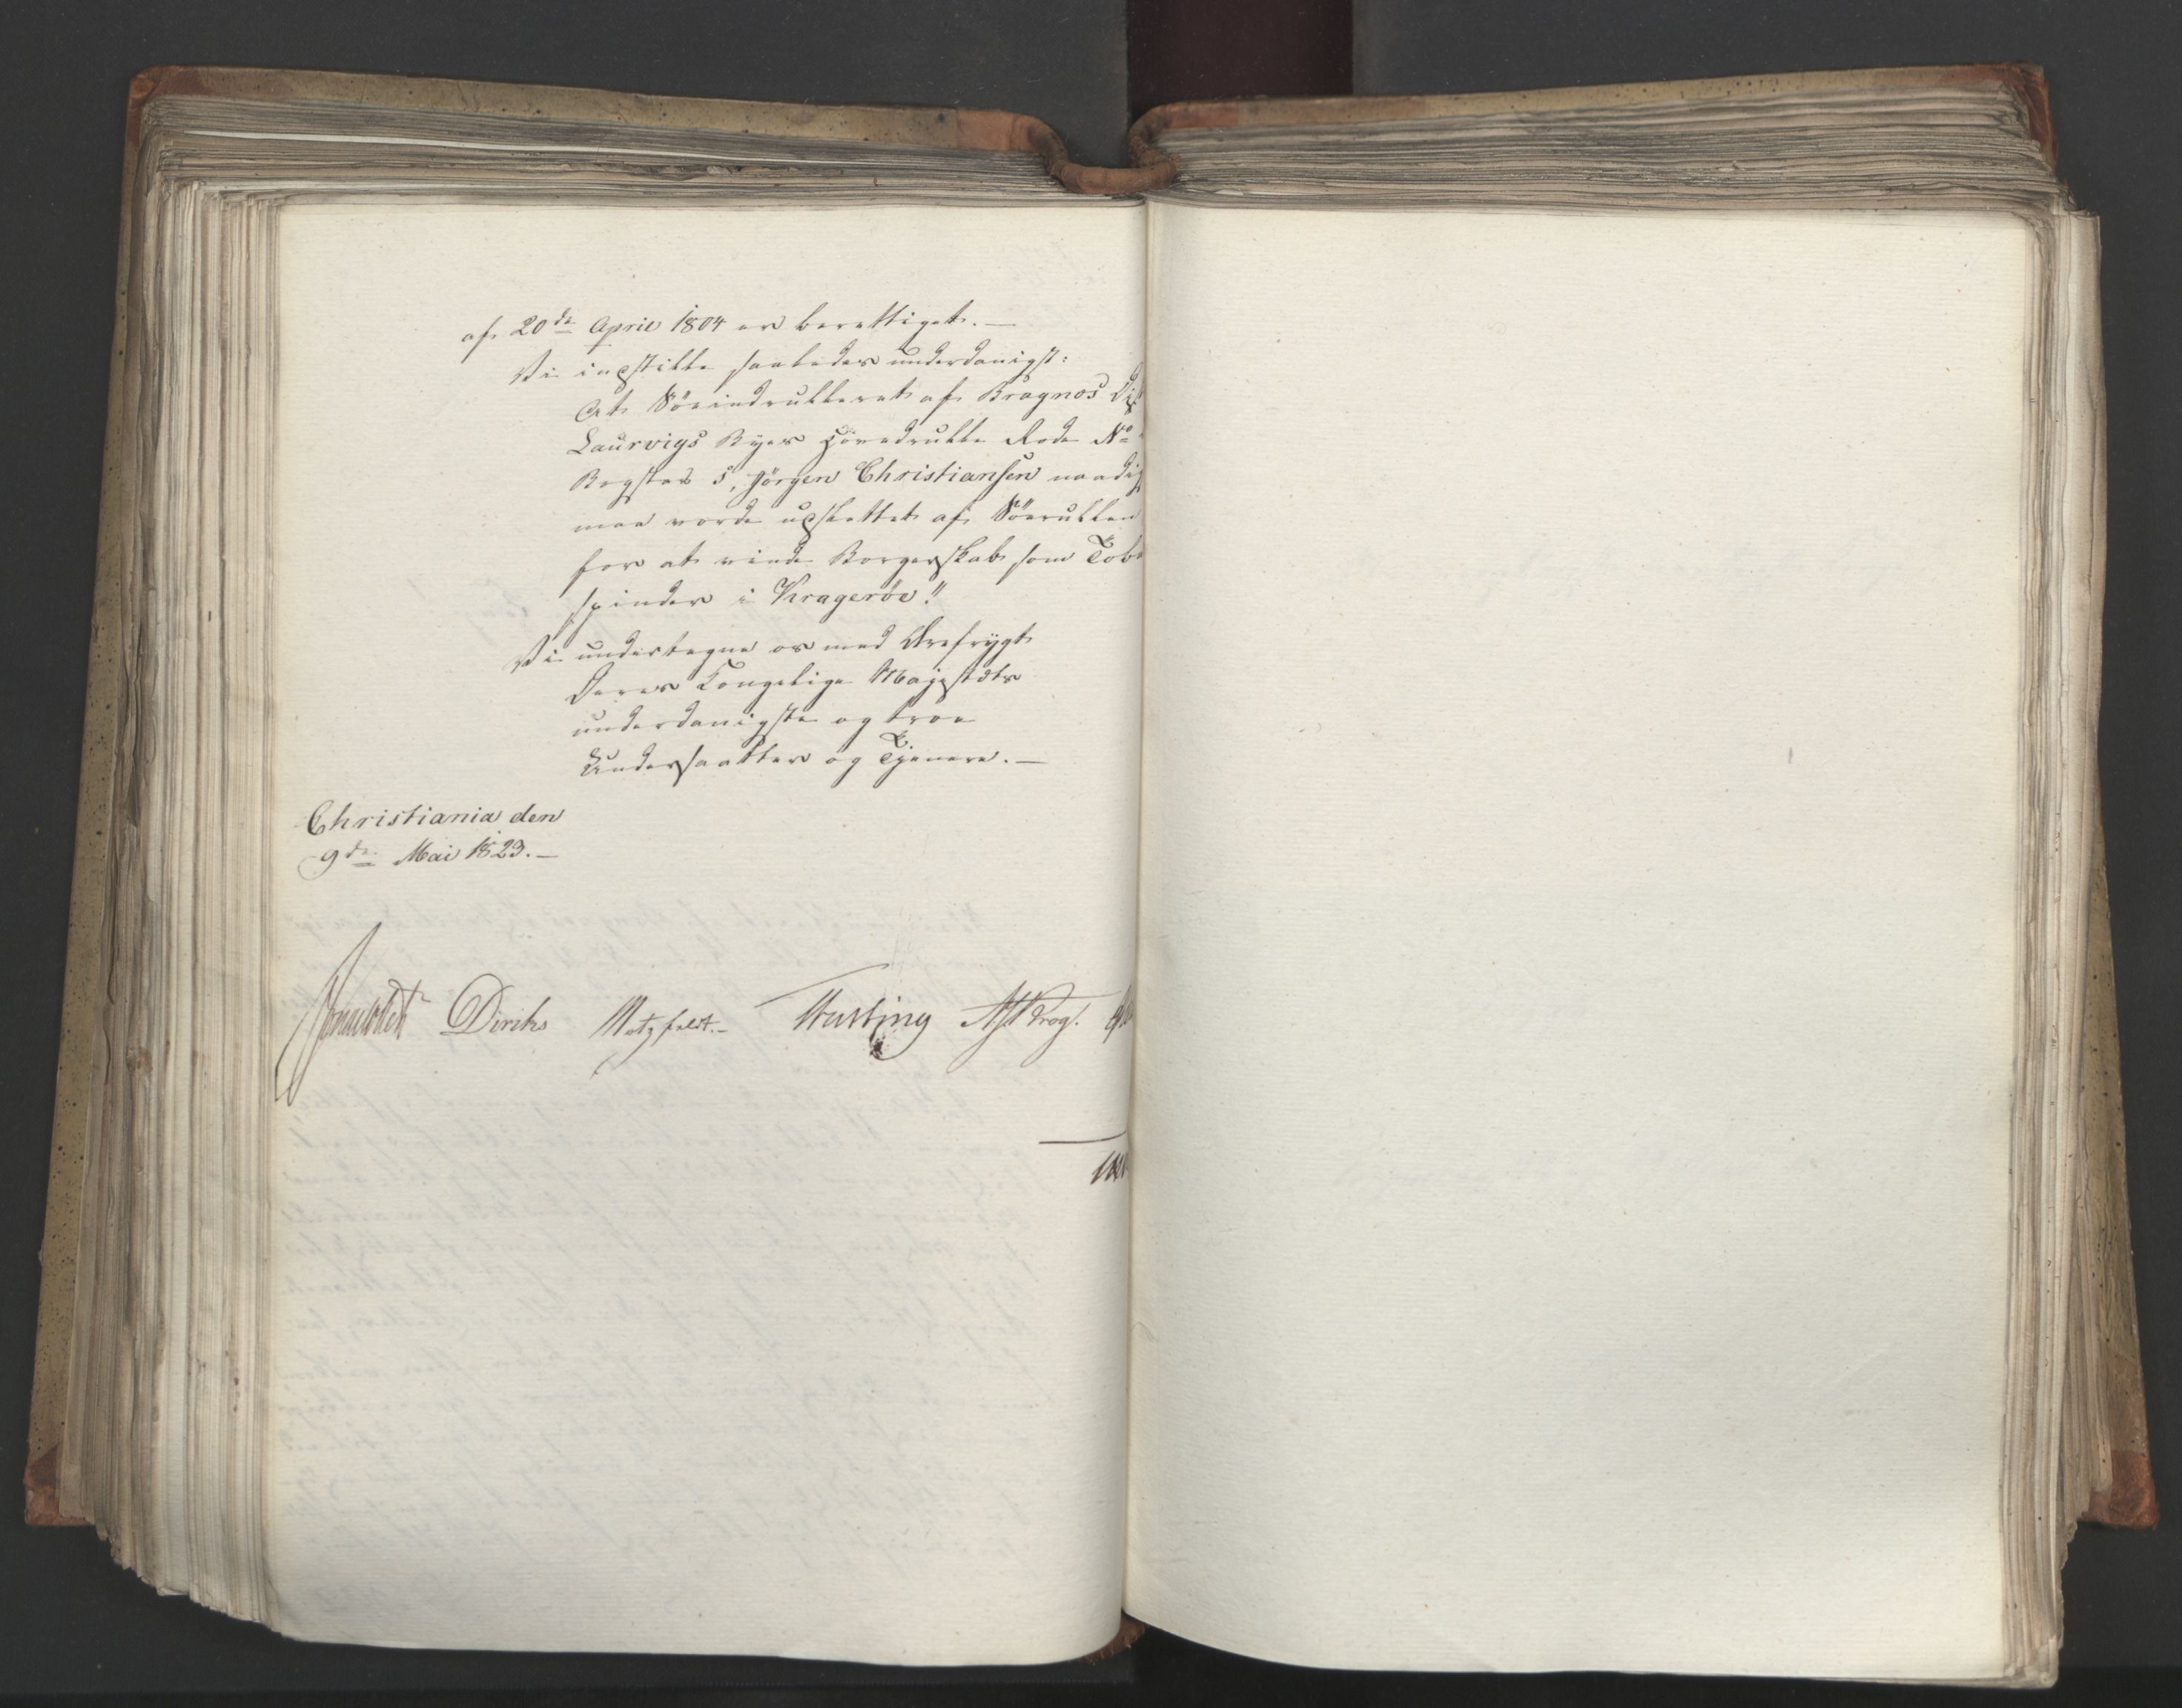 af 20de April 1804 er berettiget. —
Vi indstille saaledes underdanigst:
At Söeindrulleret af Bragnæs
Laurvigs Byes Hovedrulle Rode No
Bogstav S, Jörgen Christiansen naadigst
maa vorde udslettet af Söerullen
for at vinde Borgerskab som Tob
spinder i Krageröe."
Vi undertegne os med Ærefrygt
Deres Kongelige Majestæts
underdanigste og troe
Undersaatter og Tjenere. —
Christiania den
9de Mai 1823. —
Sommerhielm Diriks Motzfeldt. Fasting Krog.